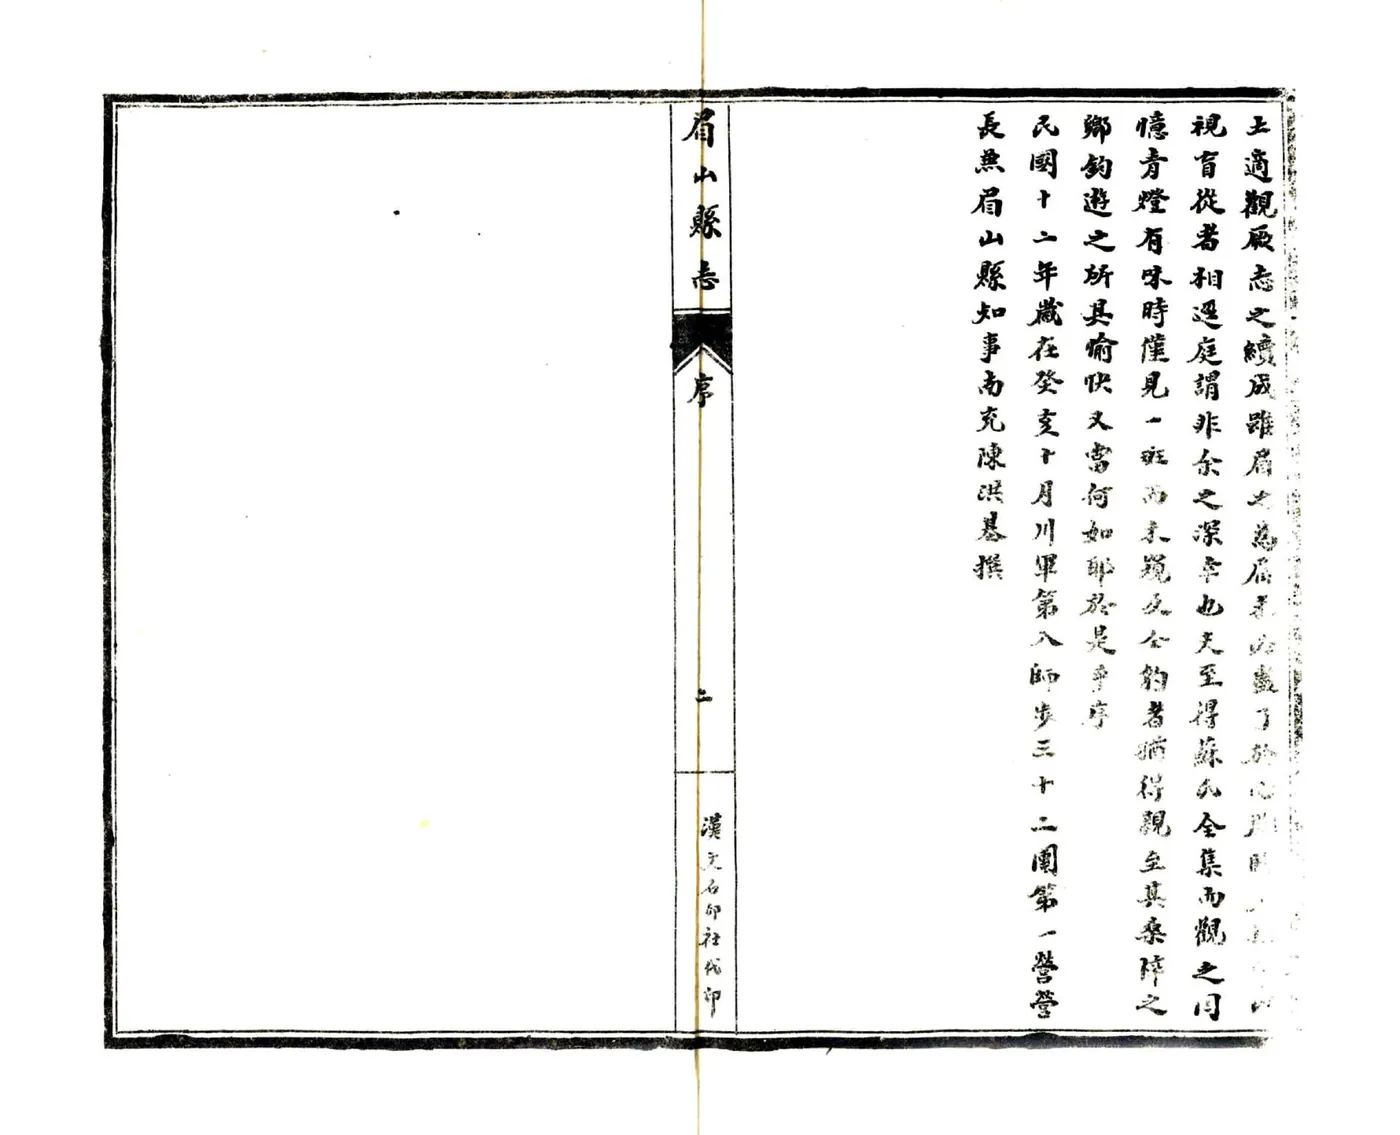 土適觀厥志之續成雖眉之為眉未必盡了於心
視盲從者相逕庭謂非余之深幸也夫至得蘇氏全集而觀之因
憶青燈有味時僅見一斑而未窺及全豹者猶得親至其桑梓之
鄉釣遊之所其愉快又當何如耶於是乎序
民國十二年歲在癸亥十月川軍第八師步三十二團第一營營
長兼眉山縣知事南充陳洪基撰
眉山縣志
序
二
漢文石印社代印